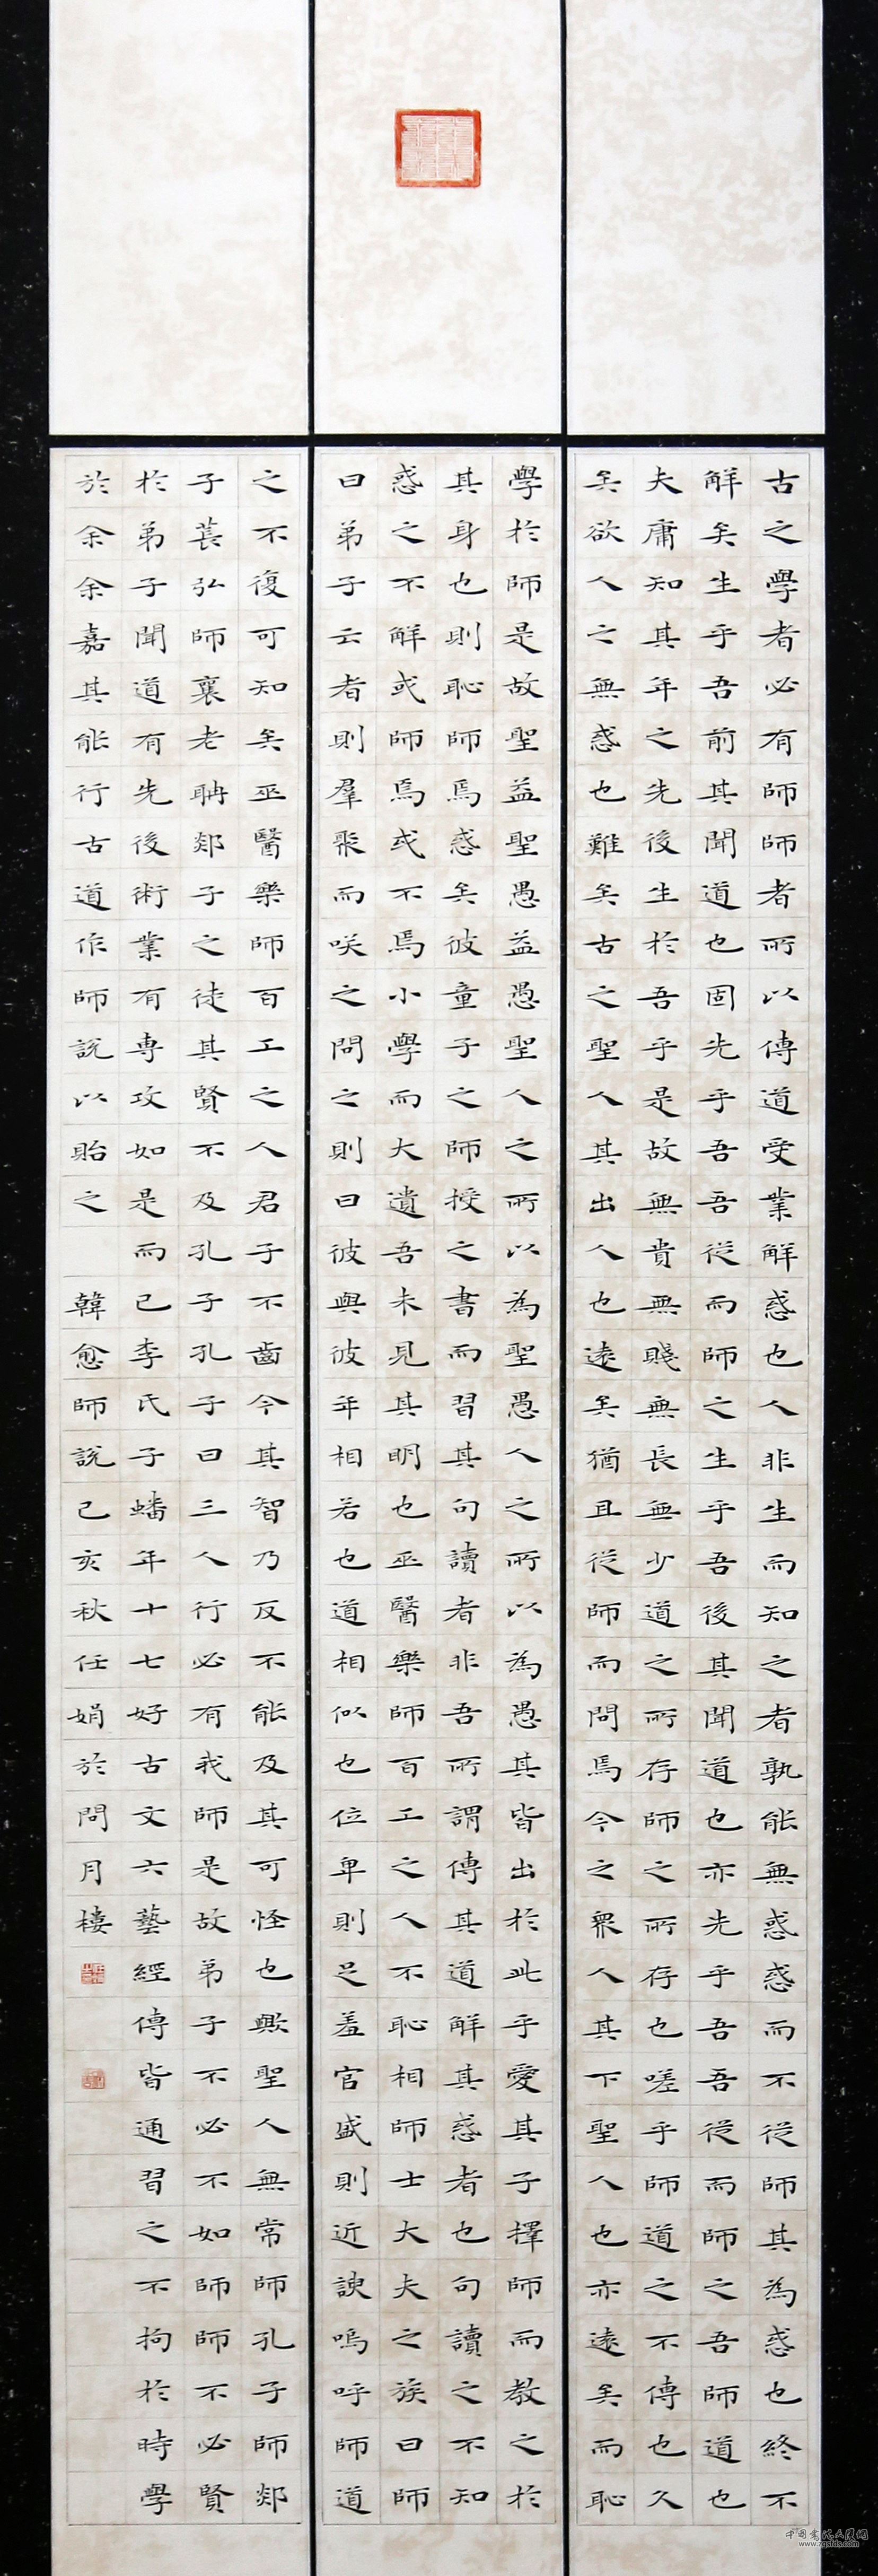 古之學者必有師師者所以傳道受業解惑也人非生而知之者孰能無惑惑而不從師其為惑也終不
解矣生乎吾前其聞道也固先乎吾吾從而師之生乎吾後其聞道也亦先乎吾吾從而師之吾師道也
夫庸知其年之先後生於吾乎是故無貴無賤無長無少道之所存師之所存也嗟乎師道之不傳也久
矣欲人之無惑也難矣古之聖人其出人也遠矣猶且從師而問焉今之眾人其下聖人也亦遠矣而恥
學於師是故聖益聖愚益愚聖人之所以為聖愚人之所以為愚其皆出於此乎愛其子擇師而教之於
其身也則恥師焉惑矣彼童子之師授之書而習其句讀者非吾所謂傳其道解其惑者也句讀之不知
惑之不解或師焉或不焉小學而大遺吾未見其明也巫醫樂師百工之人不恥相師士大夫之族曰師
曰弟子云者則羣聚而咲之問之則曰彼與彼年相若也道相似也位卑則足羞官盛則近諛嗚呼師道
之不復可知矣巫醫樂師百工之人君子不齒今其智乃反不能及其可怪也歟聖人無常師孔子師郯
子萇弘師襄老聃郯子之徒其賢不及孔子孔子曰三人行必有我師是故弟子不必不如師師不必賢
於弟子聞道有先後術業有專攻如是而已李氏子蟠年十七好古文六藝經傳皆通習之不拘於時學
於余余嘉其能行古道作師說以貽之 韓愈師說己亥秋任娟於問月樓
www.zgsfds.com